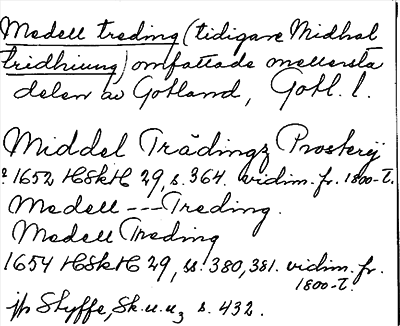 Medell treding (tidigare Midhal
tridhiung) omfattade mellersta
delen av Gotland, Gotl. l.
Middel Trädingz Prosterij
? 1652 HSkH 29, s. 364. vidim. fr. 1800-t.
Medell --- Treding.
Medell Treding
1654 HSkH 29, ss. 380, 381. vidim. fr.
1800-t.
jfr Styffe, Sk.u.u3 s. 432.